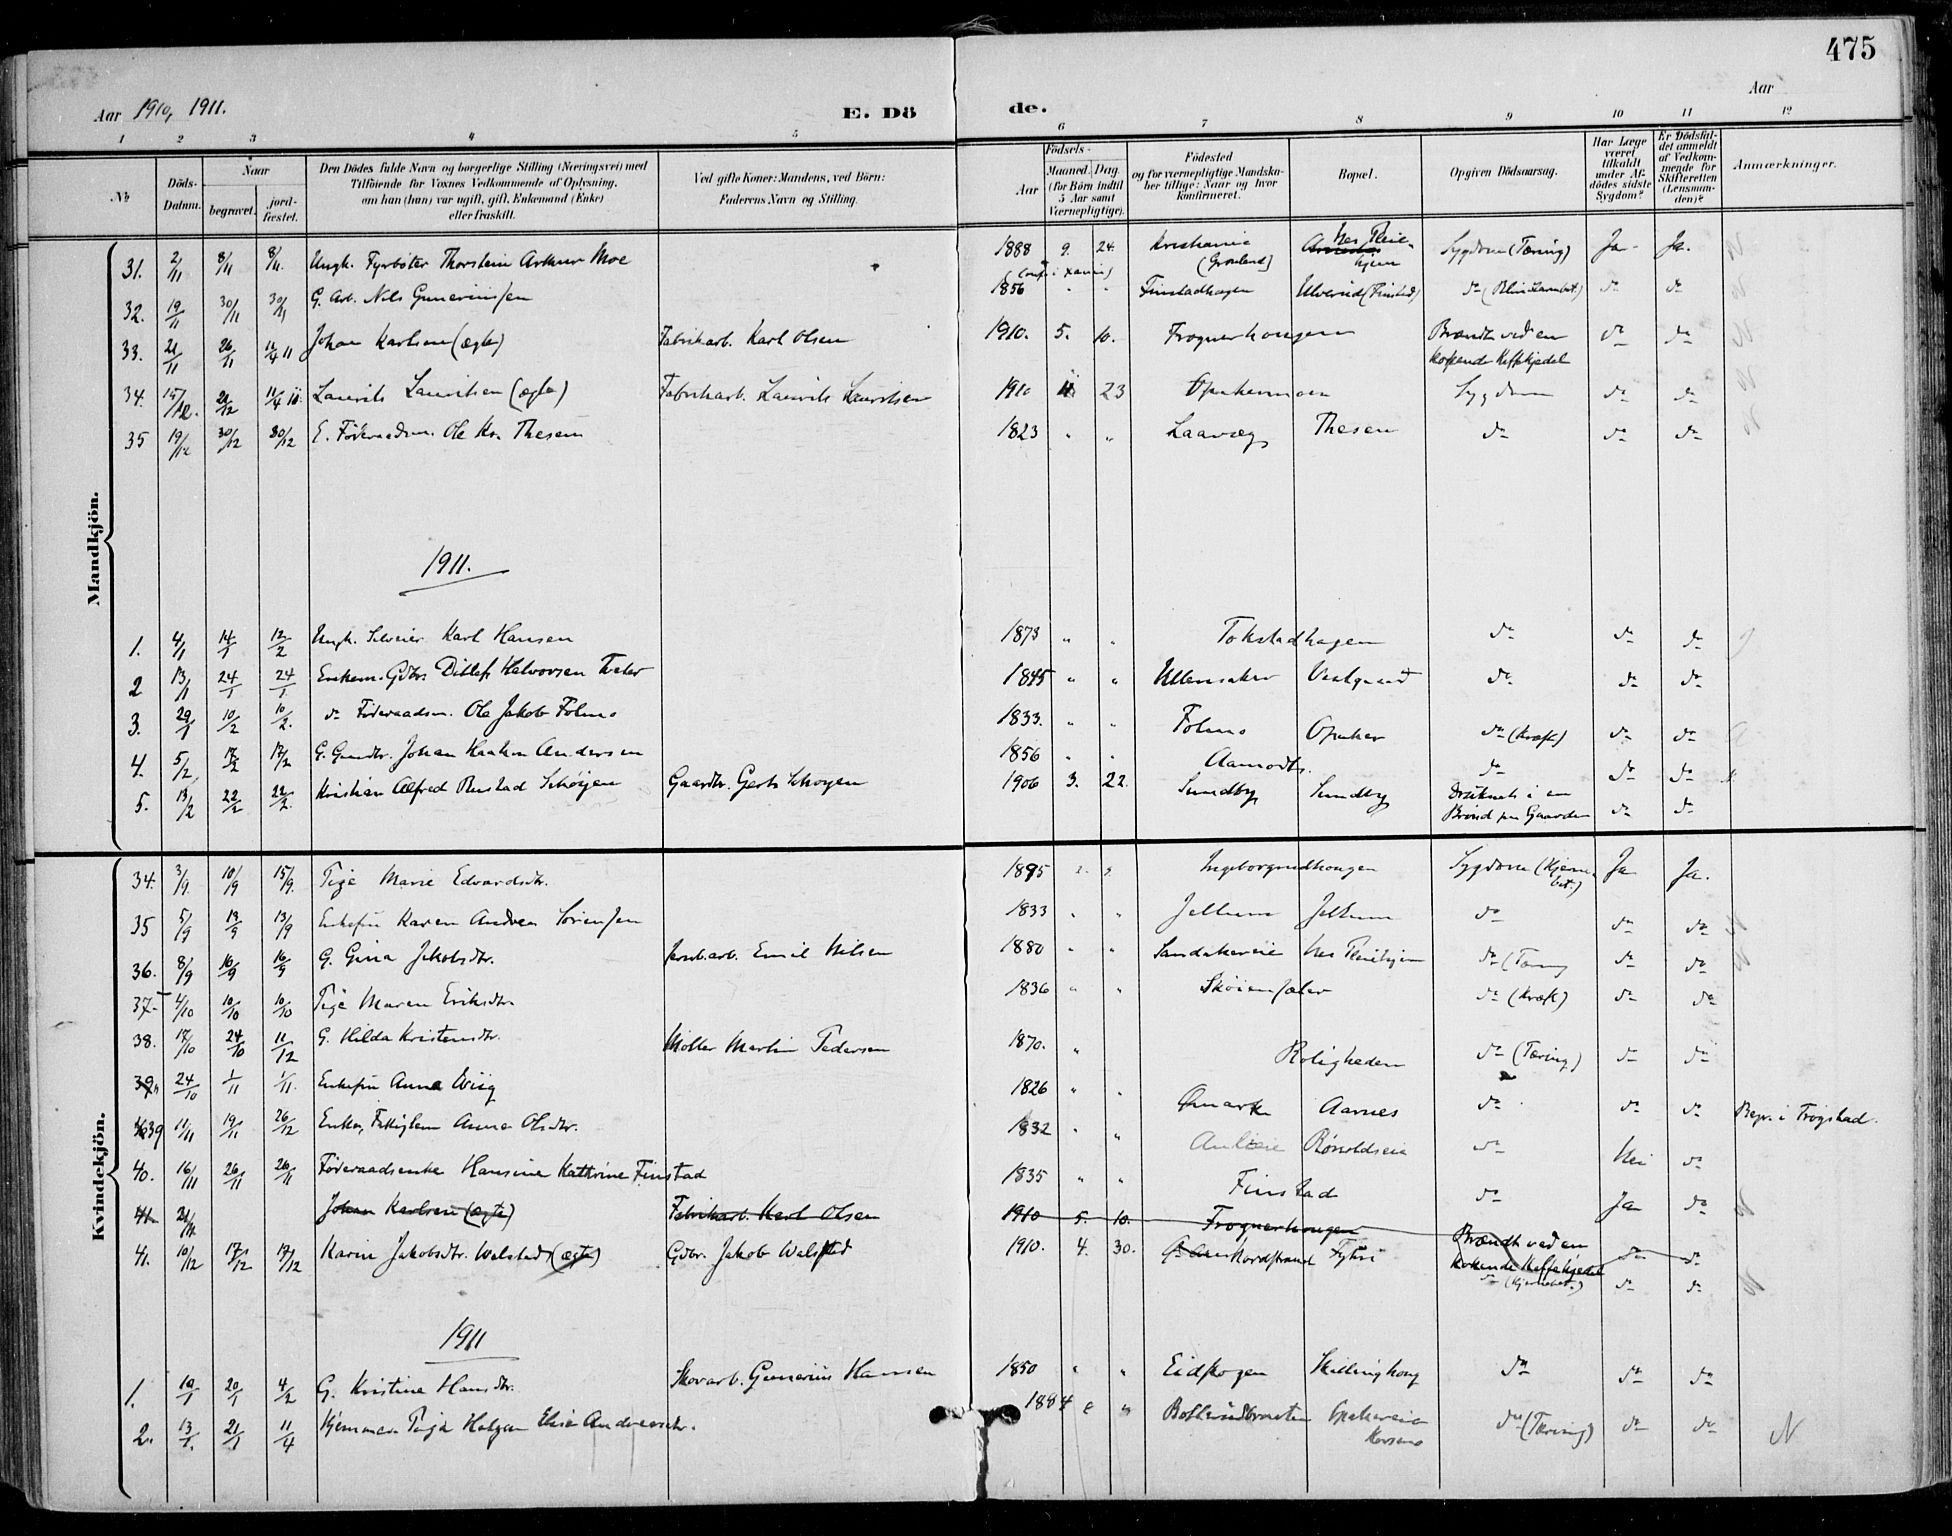 475
Aar 1910, 1911.
E. Dö de.
Aar
1 2 3 4 5 6 7 8 9 10 11 12
№
Döds-Datum.
Naar
begravet.
jord-fæstet.
Den Dödes fulde Navn og borgerlige Stilling (Næringsvei) med
Tilföiende for Voxnes Vedkommende af Oplysning,
om han (hun) var ugift, gift, Enkemand (Enke)
eller fraskilt.
Ved gifte Koner: Mandens, ved Börn:
Faderens Navn og Stilling.
Födsels-
Aar
Maaned. Dag.
(for Börn indtil
5 Aar samt
Værnepligtige).
Födested
og for værnepligtige Mandska-
ber tillige: Naar og hvor
konfirmeret.
Bopæl.
Opgiven Dödsaarsag.
Har Læge
været
tilkaldt
under Af-
dödes sidste
Sygdom?
Er Dödsfal-
det anmeldt
af Vedkom-
mende for
Skifteretten
(Lensman-
den)?
Anmærkninger.
Mandkjön.
31. 2/11 8/11 8/11. Ungk. Fyrbøter Thorstein Arthur Moe 1888 9. 24. Kristiania (Grønland) Nes Pleiehjem Sygdom (Tæring) Ja. Ja.
32. 19/11 30/11 30/11 G. Arb. Nils Gunerinssen 1856 " " Finstadhagen Ulverud (Finstad) do do do
33. 21/11 26/11 11/4 11 Johan Karlsen (ægte) Fabrikarb. Karl Olsen 1910. 5. 10. Frognerhongen Brændt ved en kokende Kaffekjedel do do
34. 15/12. 21/12 11/4 11. Laurits Lauritsen (ægte) Fabrikarb. Laurits Lauritsen 1910 11 23 Opakermoen Sygdom do do
35 19/12 30/12 30/12 E. Føderaadsm. Ole Kr. Thesen 1823 " " Laavæg Thesen do do do
1911.
1. 4/1 14/1 12/2 Ungk. Karl Hansen 1873 " " Tokstadhagen do do do
2 13/1 24/1 24/1 Enkem. Gdbr. Ditlef Halvorsen 1845 " " Ullensaker Vestgaard do do do
3. 29/1 10/2 10/2. do Føderaadsm. Ole Jakob Folmo 1833. " " Folmo Opaker do (Kræft) do do
4. 5/2 17/2 17/2 G. Gmdbr. Johan Haakon Andersen 1856 " " Aamodt do do do
5. 13/2 22/2 22/2. Kristian Alfred Rustad Schøyen Gaardbr. Gerts Schøyen 1906 3. 22. Sundby Sundby Druknet i en Brønd paa Gaarden do do
Kvindekjön.
34. 3/9. 10/9 15/9. Pige Marie Edvardsdtr. 1895 Ingeborgrudhongen Sygdom (Hjerne-bet.) Ja Ja.
35 5/9 13/9 13/9 Enkefru Karen Andrea Sørenssen 1833 " " Jelkum Jelkum do do do
36. 8/9 16/9 16/9 G. Gina Jakobsdtr. Jernb.arb. Emil Nilsen 1880 " " Sandakereie Nes Pleiehjem do (Tæring do do
37 4/10 10/10 10/10 Pige Maren Eriksdtr 1836 " " Skøiensæter do (Kræft) do do
38. 17/10 24/10 11/12 G. Hilda Kristensdtr. Møller Martin Pedersen 1870. " Roligheden do (Tæring) do do
39 24/10 1/11 1/11. Enkefru Anna 1826 " " Aarnes do do do Begr. i Trøgstad.
39 11/11 19/11 26/12 Enke, Fattiglem Anne Olsdtr. 1832 " " Rønoldseie do Nei do
40. 16/11 26/11 26/11 Føderaadsenke Hansine Kathrine Finstad 1835 " " Finstad do Ja do
41 21/11 Johan Karlsen (ægte) Fabrikarb. Karl Olsen 1910 5. 10. Frognerhongen Brændt ved en kokende Kaffekjedel do do
41. 10/12 17/12 17/12 Karin Jakobsdtr. Walstad (ægte) Gdbr. Jakob Walstad 1910. 4. 30. Nordstrand Fyhri do (Hjernebet.) do do
1911
1. 10/1 20/1 4/2 G. Kristine Hansdtr. Skovarb. Gunerius Hansen 1850 " " Eidskogen Skillinghong do do do
2. 13/1. 21/1 11/4 Hjemmev. Pige Helga Elise Andreasdtr. 1884 " " Bollerudbraaten Opakereie do (Tæring) do do N